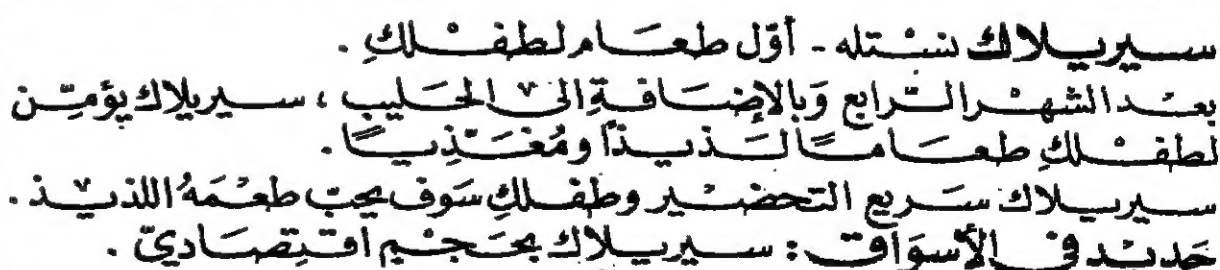 سيريلاك نستله - أوّل طعام لطفلكِ .
بعد الشهر الرابع وَبالإضافةِ الى الحَليب ، سيريلاك يؤمّن
لطفلكِ طعاماً لذيذاً ومُغذّياً .
سيريلاك سَريع التحضير وطفلكِ سَوف يحبّ طعْمَهُ اللذيذ .
جَديد في الأسوَاق : سيريلاك بحَجْم اقتِصَاديّ .